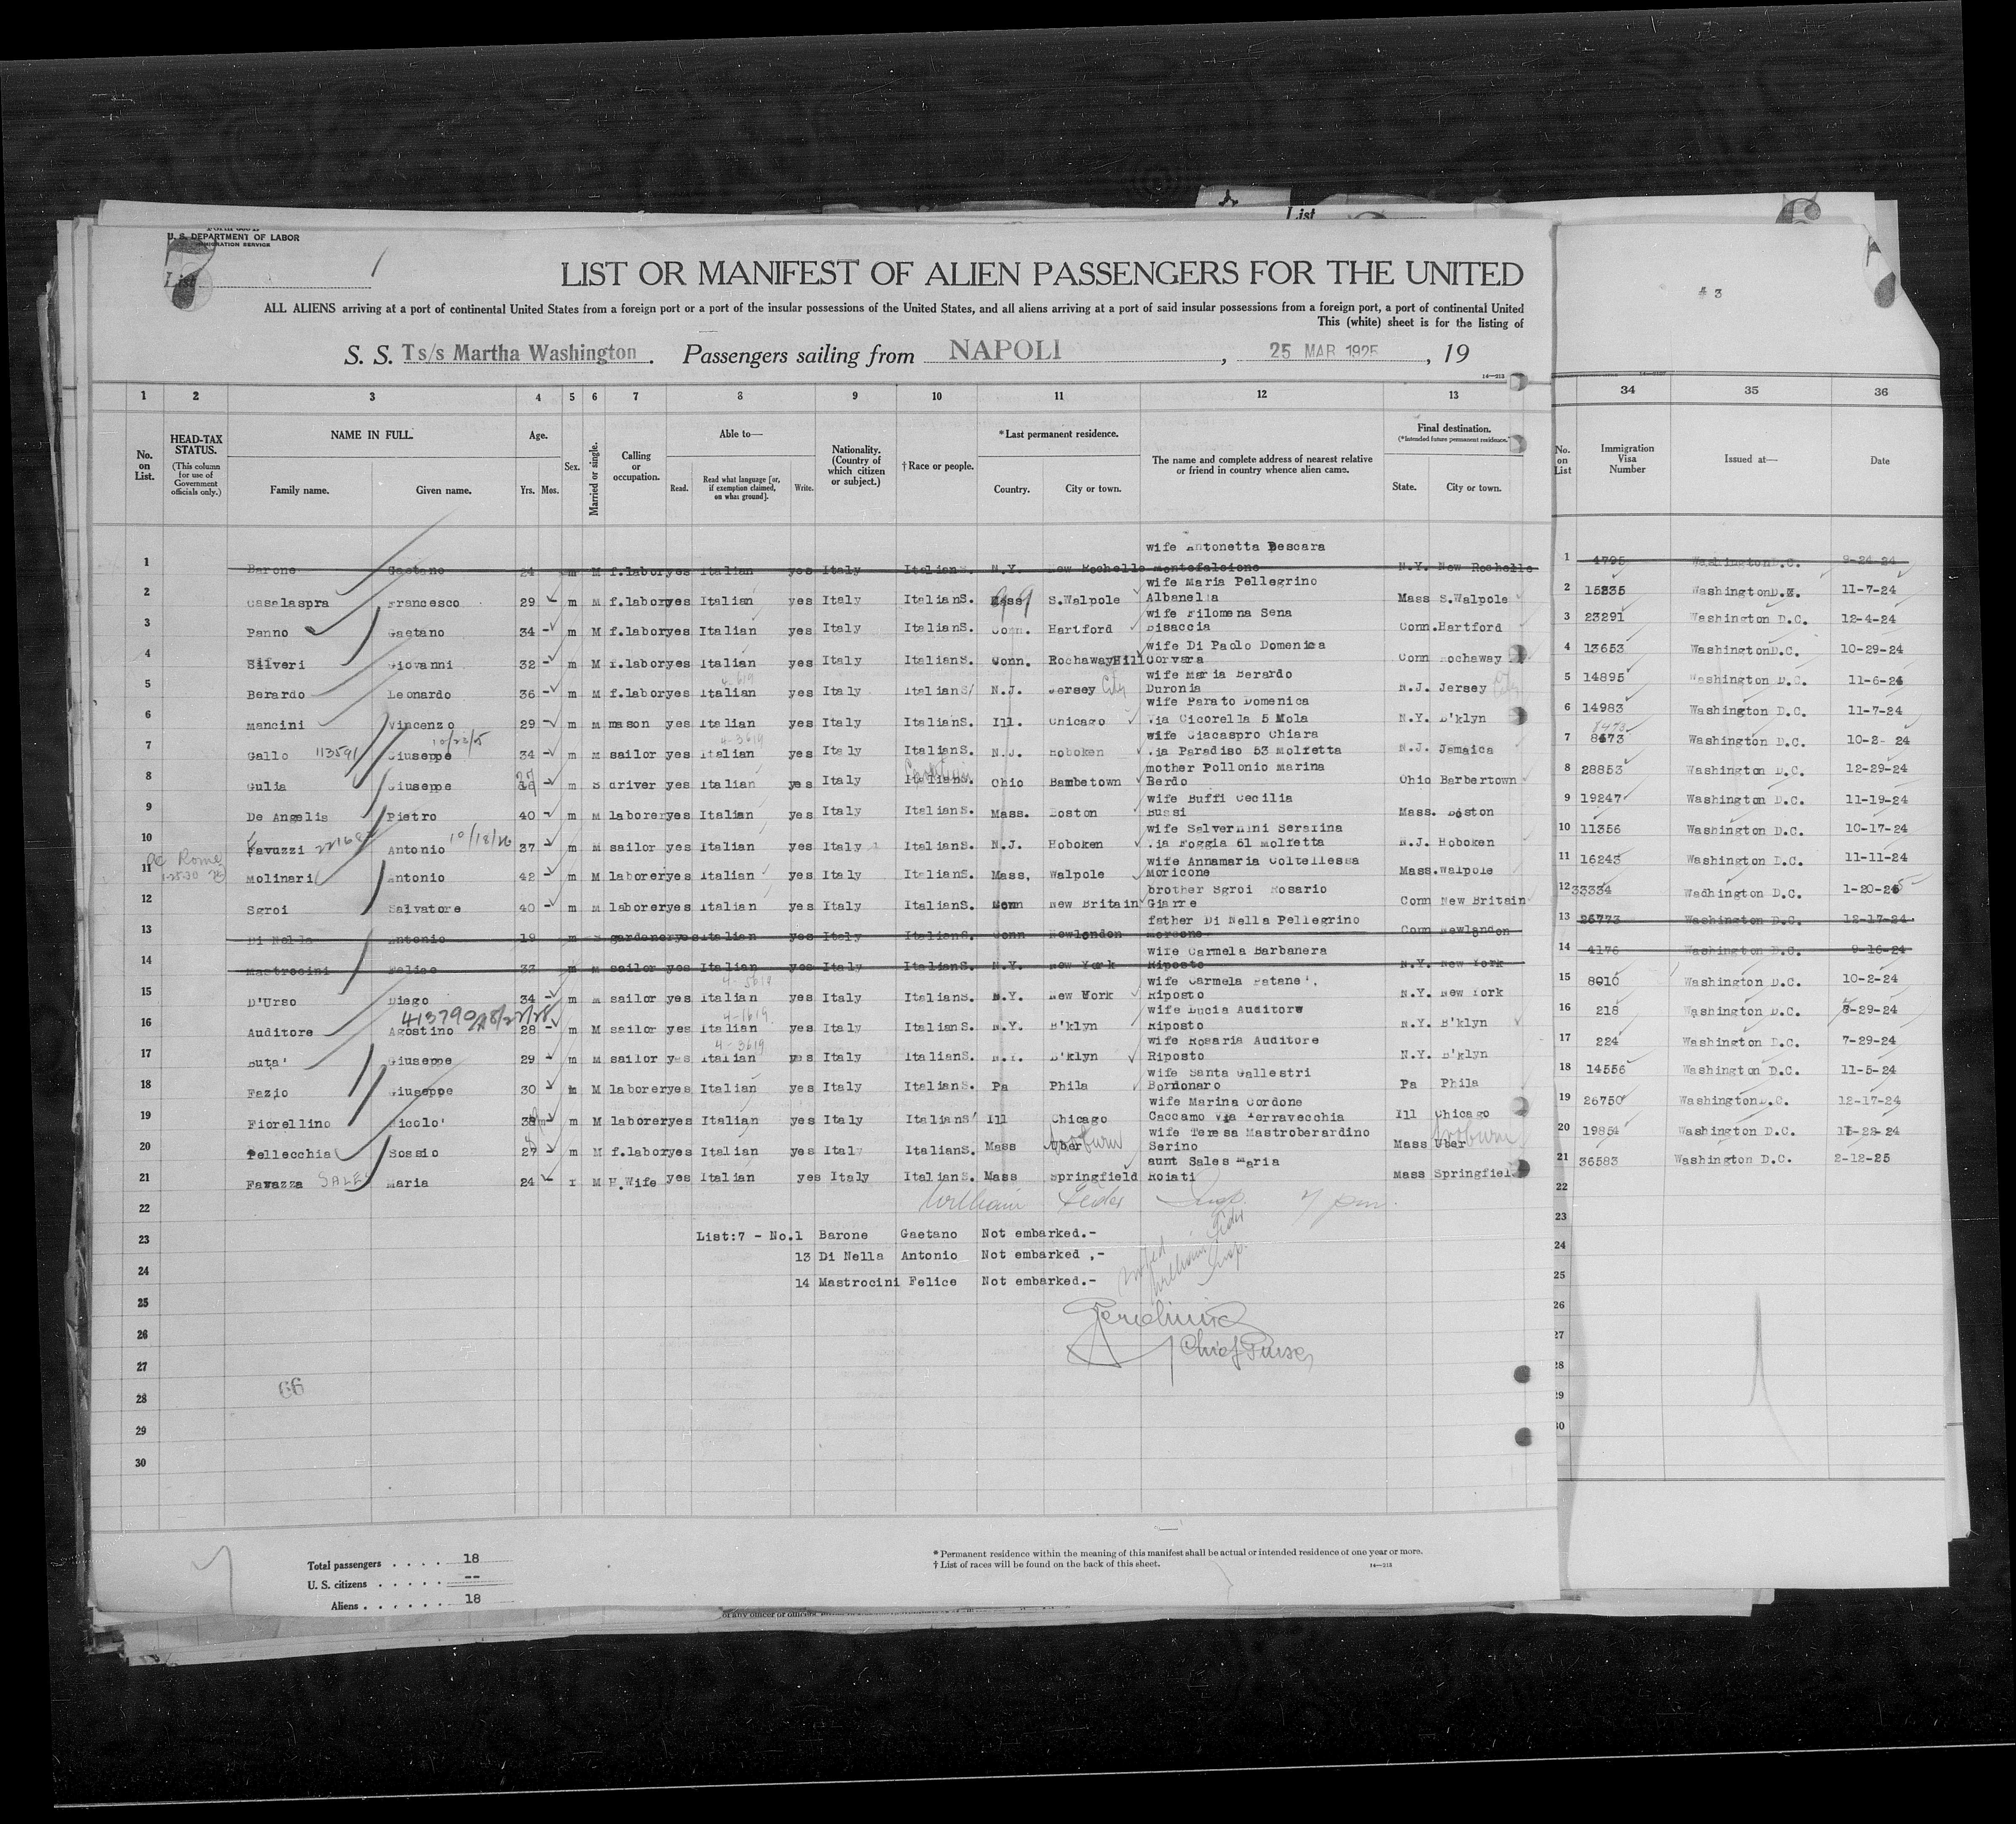 List
U. S. DEPARTMENT OF LABOR
IMMIGRATION SERVICE
List 7
LIST OR MANIFEST OF ALIEN PASSENGERS FOR THE UNITED
# 3
ALL ALIENS arriving at a port of continental United States from a foreign port or a port of the insular possessions of the United States, and all aliens arriving at a port of said insular possessions from a foreign port, a port of continental United
This (white) sheet is for the listing of
S. S. Ts/s Martha Washington. Passengers sailing from NAPOLI, 25 MAR 1925, 19
14—213
1 2 3 4 5 6 7 8 9 10 11 12 13 34 35 36
No. on List.
HEAD-TAX STATUS.
(This column for use of Government officials only.)
NAME IN FULL.
Family name. Given name.
Age.
Yrs. Mos.
Sex.
Married or single.
Calling or occupation.
Able to—
Read. Read what language [or, if exemption claimed, on what ground]. Write.
Nationality. (Country of which citizen or subject.)
†Race or people.
*Last permanent residence.
Country. City or town.
The name and complete address of nearest relative or friend in country whence alien came.
Final destination.
(*Intended future permanent residence.)
State. City or town.
No. on List
Immigration Visa Number
Issued at—
Date
wife Antonetta Pescara
1 Barone Gaetano 24 m M f.labor yes Italian yes Italy ItalianS. N.Y. New Rochelle Montefalcione N.Y. New Rochelle 1 4795 Washington D.C. 9-24-24
wife Maria Pellegrino
2 Casalaspra Francesco 29 m M f.labor yes Italian yes Italy ItalianS. Mass S.Walpole Albanella Mass S.Walpole 2 15235 Washington 11-7-24
wife Filomena Sena
3 Panno Gaetano 34 - m M f.labor yes Italian yes Italy ItalianS. Conn. Hartford Bisaccia Conn. Hartford 3 23291 Washington D.C. 12-4-24
wife Di Paolo Domenica
4 Silveri Giovanni 32 - m M f.labor yes Italian yes Italy ItalianS. Conn. RochawayHill Corvara Conn Rochaway 4 13653 Washington D.C. 10-29-24
wife Maria Berardo
5 Berardo Leonardo 36 - m M f.labor yes Italian yes Italy ItalianS/ N.J. Jersey City Duronia N.J. Jersey City 5 14895 Washington D.C. 11-6-24
wife Parato Domenica
6 Mancini Vincenzo 29 - m M mason yes Italian yes Italy ItalianS. Ill. Chicago Via Cicorella 5 Mola N.Y. B'klyn 6 14983 Washington D.C. 11-7-24
wife Giacaspro Chiara
7 Gallo 113591 Giuseppe 34 - m M sailor yes Italian yes Italy ItalianS. N.J. Hoboken Via Paradiso 53 Molfetta N.J. Jamaica 7 8473 Washington D.C. 10-2-24
mother Pollonio Marina
8 Gulia Giuseppe m S driver yes Italian yes Italy ItalianS. Ohio Bambetown Berdo Ohio Barbertown 8 28853 Washington D.C. 12-29-24
wife Buffi Cecilia
9 De Angelis Pietro 40 - m M laborer yes Italian yes Italy ItalianS. Mass. Boston Bussi Mass. Boston 9 19247 Washington D.C. 11-19-24
wife Salvernini Serafina
10 Favuzzi Antonio 10/18/26 37 - m M sailor yes Italian yes Italy ItalianS. N.J. Hoboken Via Foggia 61 Molfetta N.J. Hoboken 10 11356 Washington D.C. 10-17-24
wife Annamaria Coltellessa
11 Rome Molinari Antonio 42 - m M laborer yes Italian yes Italy ItalianS. Mass, Walpole Moricone Mass. Walpole 11 16243 Washington D.C. 11-11-24
brother Sgroi Rosario
12 Sgroi Salvatore 40 - m M laborer yes Italian yes Italy ItalianS. Conn New Britain Giarre Conn New Britain 12 33334 Wadhington D.C. 1-20-25
father Di Nella Pellegrino
13 Di Nella Antonio 19 m S gardener yes Italian yes Italy ItalianS. Conn Newlondon Morcone Conn Newlondon 13 26773 Washington D.C. 12-17-24
wife Carmela Barbanera
14 Mastrocini Felice 37 m M sailor yes Italian yes Italy ItalianS. N.Y. New York Riposto N.Y. New York 14 4176 Washington D.C. 9-16-24
wife Carmela Patane',
15 D'Urso Diego 34 - m M sailor yes Italian yes Italy ItalianS. N.Y. New York Riposto N.Y. New York 15 8010 Washington D.C. 10-2-24
wife Lucia Auditore
16 Auditore Agostino 28 - m M sailor yes Italian yes Italy ItalianS. N.Y. B'klyn Riposto N.Y. B'klyn 16 218 Washington D.C. 7-29-24
wife Rosaria Auditore
17 Buta' Giuseppe 29 - m M sailor yes Italian yes Italy ItalianS. N.Y. B'klyn Riposto N.Y. B'klyn 17 224 Washington D.C. 7-29-24
wife Santa Gallestri
18 Fazio Giuseppe 30 m M laborer yes Italian yes Italy ItalianS. Pa Phila Bordonaro Pa Phila 18 14556 Washington D.C. 11-5-24
wife Marina Cordone
19 Fiorellino Nicolo' 38 m M laborer yes Italian yes Italy ItalianS' Ill Chicago Caccamo Via Terravecchia Ill Chicago 19 26750 Washington D.C. 12-17-24
wife Teresa Mastroberardino
20 Pellecchia Sossio 27 m M f.labor yes Italian yes Italy ItalianS. Mass Uber Woburn Serino Mass Uber Woburn 20 19854 Washington D.C. 11-28-24
aunt Sales Maria
21 Favazza SALES Maria 24 f M H.Wife yes Italian yes Italy ItalianS. Mass Springfield Roiati Mass Springfiel 21 36583 Washington D.C. 2-12-25
22 William Insp. 22
23 List:7 - No.1 Barone Gaetano Not embarked.- 23
13 Di Nella Antonio Not embarked ,-
24 14 Mastrocini Felice Not embarked.- 24
25 25
26 26
27 Chief Purser 27
28 66 28
29 29
30 30
Total passengers . . . . . 18
U. S. citizens . . . . . . --
Aliens . . . . . . . 18
* Permanent residence within the meaning of this manifest shall be actual or intended residence of one year or more.
† List of races will be found on the back of this sheet.
14—213